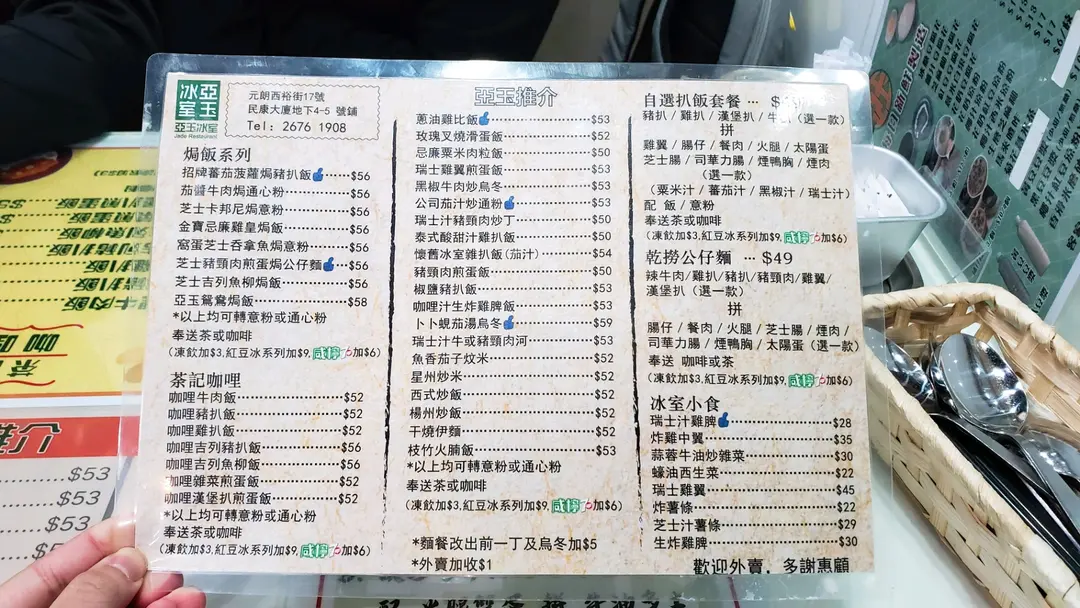 亞玉冰室
亞玉冰室
Jade Restaurant
元朗西裕街17號
民康大廈地下4-5 號鋪
Tel: 2676 1908
焗飯系列
招牌蕃茄菠蘿焗豬扒飯 $56
茄醬牛肉焗通心粉 $56
芝士卡邦尼焗意粉 $56
金寶忌廉雞皇焗飯 $56
窩蛋芝士吞拿魚焗意粉 $56
芝士豬頸肉煎蛋焗公仔麵 $56
芝士吉列魚柳焗飯 $56
亞玉鴛鴦焗飯 $58
*以上均可轉意粉或通心粉
奉送茶或咖啡
(凍飲加$3,紅豆冰系列加$9, 咸檸7加$6)
茶記咖哩
咖哩牛肉飯 $52
咖哩豬扒飯 $52
咖哩雞扒飯 $52
咖哩吉列豬扒飯 $56
咖哩吉列魚柳飯 $56
咖哩雜菜煎蛋飯 $52
咖哩漢堡扒煎蛋飯 $52
*以上均可轉意粉或通心粉
奉送茶或咖啡
(凍飲加$3,紅豆冰系列加$9, 咸檸7加$6)
亞玉推介
蔥油雞比飯 $53
玫瑰叉燒滑蛋飯 $52
忌廉粟米肉粒飯 $50
瑞士雞翼煎蛋飯 $53
黑椒牛肉炒烏冬 $53
公司茄汁炒通粉 $53
瑞士汁豬頸肉炒丁 $50
泰式酸甜汁雞扒飯 $50
懷舊冰室雜扒飯(茄汁) $54
豬頸肉煎蛋飯 $50
椒鹽豬扒飯 $53
咖哩汁生炸雞脾飯 $53
卜卜蜆茄湯烏冬 $59
瑞士汁牛或豬頸肉河 $53
魚香茄子炆米 $52
星州炒米 $52
西式炒飯 $52
楊州炒飯 $52
干燒伊麵 $52
枝竹火腩飯 $53
*以上均可轉意粉或通心粉
奉送茶或咖啡
(凍飲加$3,紅豆冰系列加$9, 咸檸7加$6)
*麵餐改出前一丁及烏冬加$5
*外賣加收$1
自選扒飯套餐 ...
豬扒 / 雞扒 / 漢堡扒 / 牛扒 (選一款)
拼
雞翼 / 腸仔 / 餐肉 / 火腿 / 太陽蛋
芝士腸 / 司華力腸 / 煙鴨胸 / 煙肉
(選一款)
(粟米汁 / 蕃茄汁 / 黑椒汁 / 瑞士汁)
配 飯 / 意粉
奉送茶或咖啡
(凍飲加$3,紅豆冰系列加$9, 咸檸7加$6)
乾撈公仔麵 ... $49
辣牛肉/ 雞扒/豬扒/ 豬頸肉/ 雞翼/
漢堡扒 (選一款)
拼
腸仔 / 餐肉 / 火腿 / 芝士腸 / 煙肉 /
司華力腸 / 煙鴨胸 / 太陽蛋 (選一款)
奉送 咖啡或茶
(凍飲加$3,紅豆冰系列加$9, 咸檸7加$6)
冰室小食
瑞士汁雞脾 $28
炸雞中翼 $35
蒜蓉牛油炒雜菜 $30
蠔油西生菜 $22
瑞士雞翼 $45
炸薯條 $22
芝士汁薯條 $29
生炸雞脾 $30
歡迎外賣，多謝惠顧
$53
$53
$53